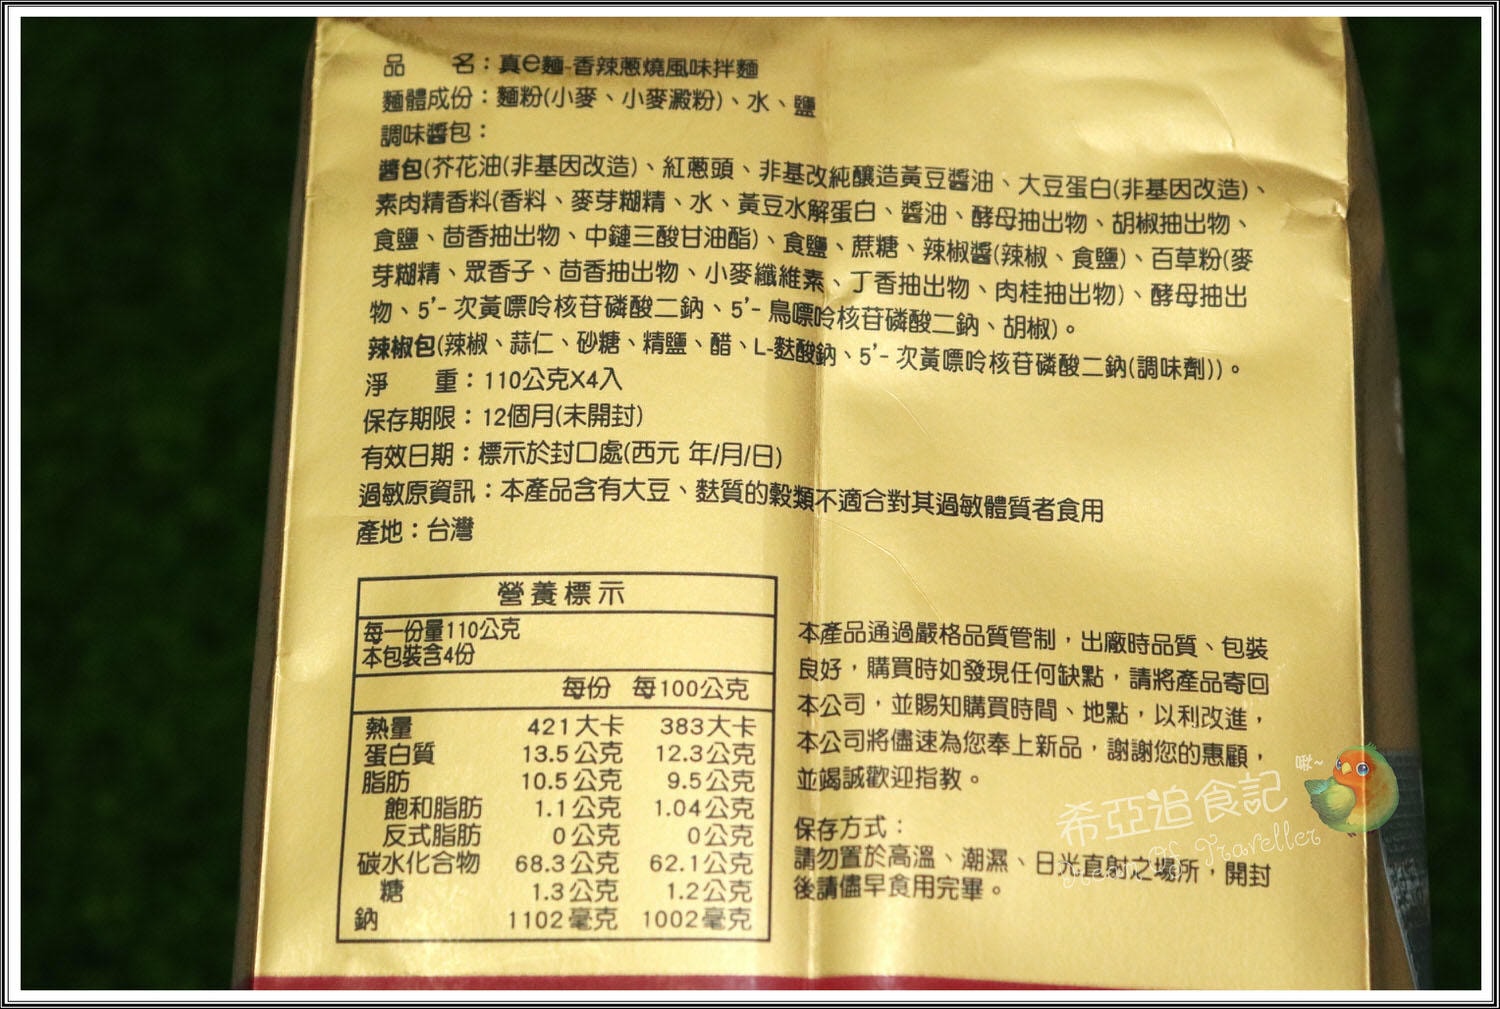 品　　名：真e麵-香辣蔥燒風味拌麵
麵體成份：麵粉(小麥、小麥澱粉)、水、鹽
調味醬包：
醬包(芥花油(非基因改造)、紅蔥頭、非基改純釀造黃豆醬油、大豆蛋白(非基因改造)、
素肉精香料(香料、麥芽糊精、水、黃豆水解蛋白、醬油、酵母抽出物、胡椒抽出物、
食鹽、茴香抽出物、中鏈三酸甘油酯)、食鹽、蔗糖、辣椒醬(辣椒、食鹽)、百草粉(麥
芽糊精、眾香子、茴香抽出物、小麥纖維素、丁香抽出物、肉桂抽出物)、酵母抽出
物、5'-次黃嘌呤核苷磷酸二鈉、5'-鳥嘌呤核苷磷酸二鈉、胡椒)。
辣椒包(辣椒、蒜仁、砂糖、精鹽、醋、L-麩酸鈉、5'-次黃嘌呤核苷磷酸二鈉(調味劑))。
淨　　重：110公克X4入
保存期限：12個月(未開封)
有效日期：標示於封口處(西元 年/月/日)
過敏原資訊：本產品含有大豆、麩質的穀類不適合對其過敏體質者食用
產地：台灣
營養標示
每一份量110公克
本包裝含4份
每份 每100公克
熱量 421大卡 383大卡
蛋白質 13.5公克 12.3公克
脂肪 10.5公克 9.5公克
飽和脂肪 1.1公克 1.04公克
反式脂肪 0公克 0公克
碳水化合物 68.3公克 62.1公克
糖 1.3公克 1.2公克
鈉 1102毫克 1002毫克
本產品通過嚴格品質管制，出廠時品質、包裝
良好，購買時如發現任何缺點，請將產品寄回
本公司，並賜知購買時間、地點，以利改進，
本公司將儘速為您奉上新品，謝謝您的惠顧，
並竭誠歡迎指教。
保存方式：
請勿置於高溫、潮濕、日光直射之場所，開封
後請儘早食用完畢。
希亞追食記
Of Traveller